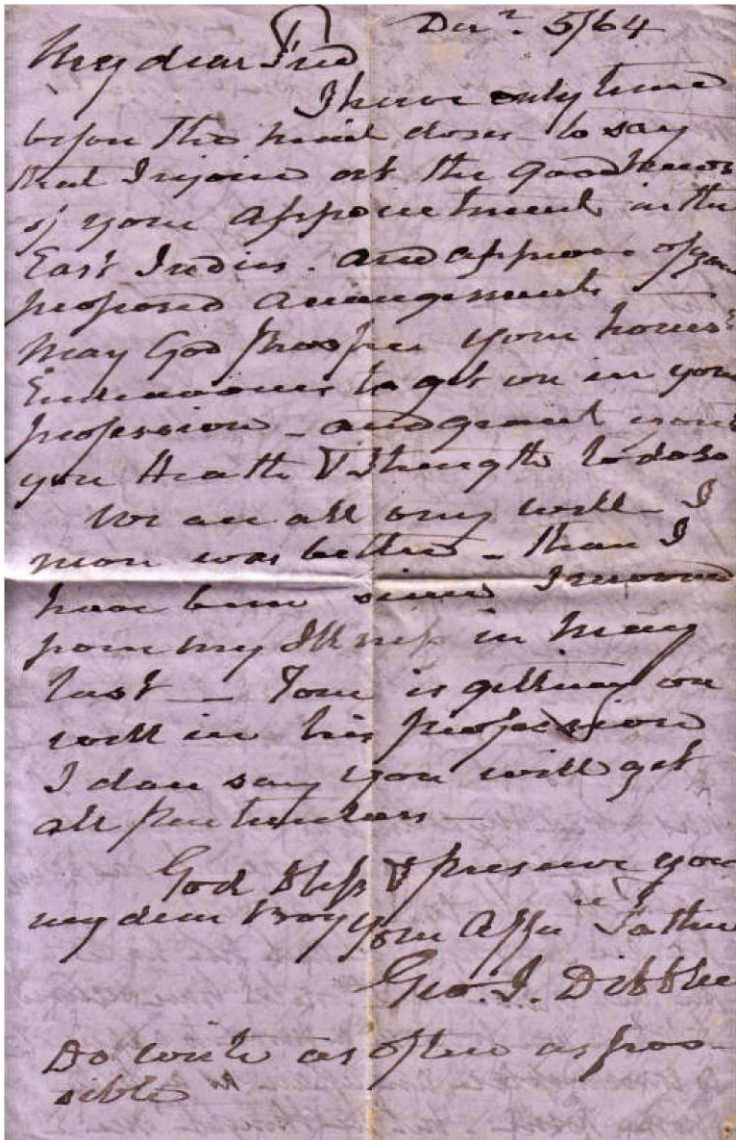 Decr. 5/64
My dear Fred
I have only time
before the mail closes to say
that I rejoice at the good news
of your appointment in the
East Indies. and approve of your
proposed arrangements
may God prosper your honest
Endeavours to get on in your
profession - and grant
you Health & Strength to do so
We are all very well - I
never was better - than I
have been since I recovered
from my Illness in May
last - Tom is getting on
well in his profession
I dare say you will get
all particulars -
God Bless & preserve you
my dear Boy your Affte Father
Geo. J. Dibblee
Do write as often as pos-
sible